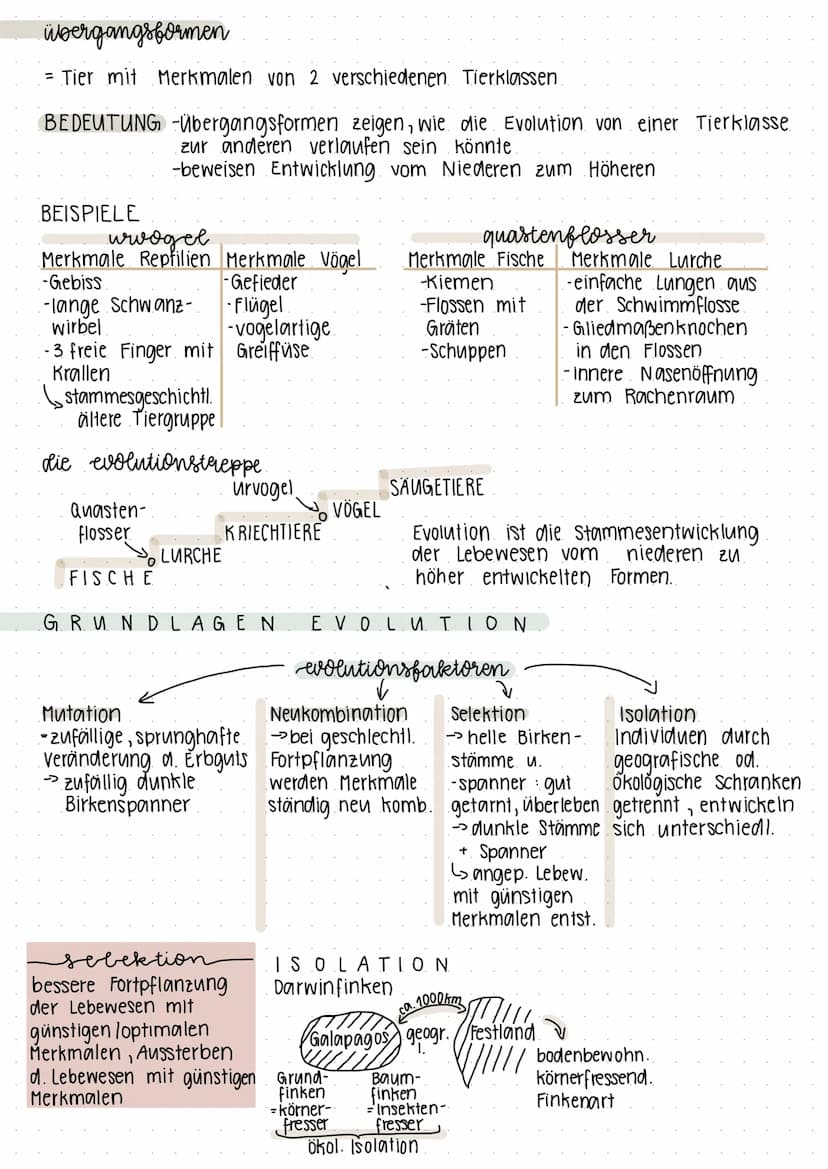 übergangsformen
= Tier mit Merkmalen von 2 verschiedenen Tierklassen
BEDEUTUNG -Übergangsformen zeigen, wie die Evolution von einer Tierklasse
zur anderen verlaufen sein könnte
-beweisen Entwicklung vom Niederen zum Höheren
BEISPIELE
urvogel
Merkmale Reptilien
-Gebiss
-lange Schwanz-
wirbel
-3 freie Finger mit
Krallen
stammesgeschichtl.
ältere Tiergruppe
Merkmale Vögel
-Gefieder
-Flügel
-vogelartige
Greiffüse
quastenflosser
Merkmale Fische
-Kiemen
-Flossen mit
Gräten
-Schuppen
Merkmale Lurche
-einfache Lungen aus
der Schwimmflosse
-Gliedmaßenknochen
in den Flossen
-Innere Nasenöffnung
zum Rachenraum
die evolutionstreppe
Quasten-
flosser
FISCHE
LURCHE
KRIECHTIERE
urvogel
VÖGEL
SÄUGETIERE
Evolution ist die Stammesentwicklung
der Lebewesen vom niederen zu
höher entwickelten Formen.
GRUNDLAGEN EVOLUTION
evolutionsfaktoren
Mutation
-zufällige, sprunghafte
Veränderung d. Erbguts
→ zufällig dunkle
Birkenspanner
Neukombination
→bei geschlechtl.
Fortpflanzung
werden Merkmale
ständig neu komb.
Selektion
→ helle Birken-
stämme u.
-spanner : gut
getarnt, überleben
→ dunkle Stämme
+ Spanner
↳ angep. Lebew.
mit günstigen
Merkmalen entst.
Isolation
Individuen durch
geografische od.
ökologische Schranken
getrennt, entwickeln
sich unterschiedl.
selektion
bessere Fortpflanzung
der Lebewesen mit
günstigen/optimalen
Merkmalen, Aussterben
d. Lebewesen mit günstigen
Merkmalen
ISOLATION
Darwinfinken
ca. 1000km
Galapagos
geogr.
I.
Festland
bodenbewohn.
körnerfressend.
Finkenart
Grund-
finken
=körner-
fresser
Baum-
finken
=Insekten-
fresser
ökol. Isolation